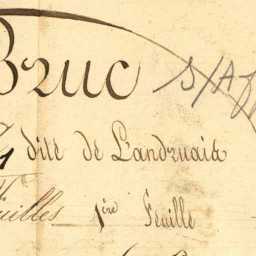 Bruc S/Aff
dite de Landruais
uilles 1ère Feuille